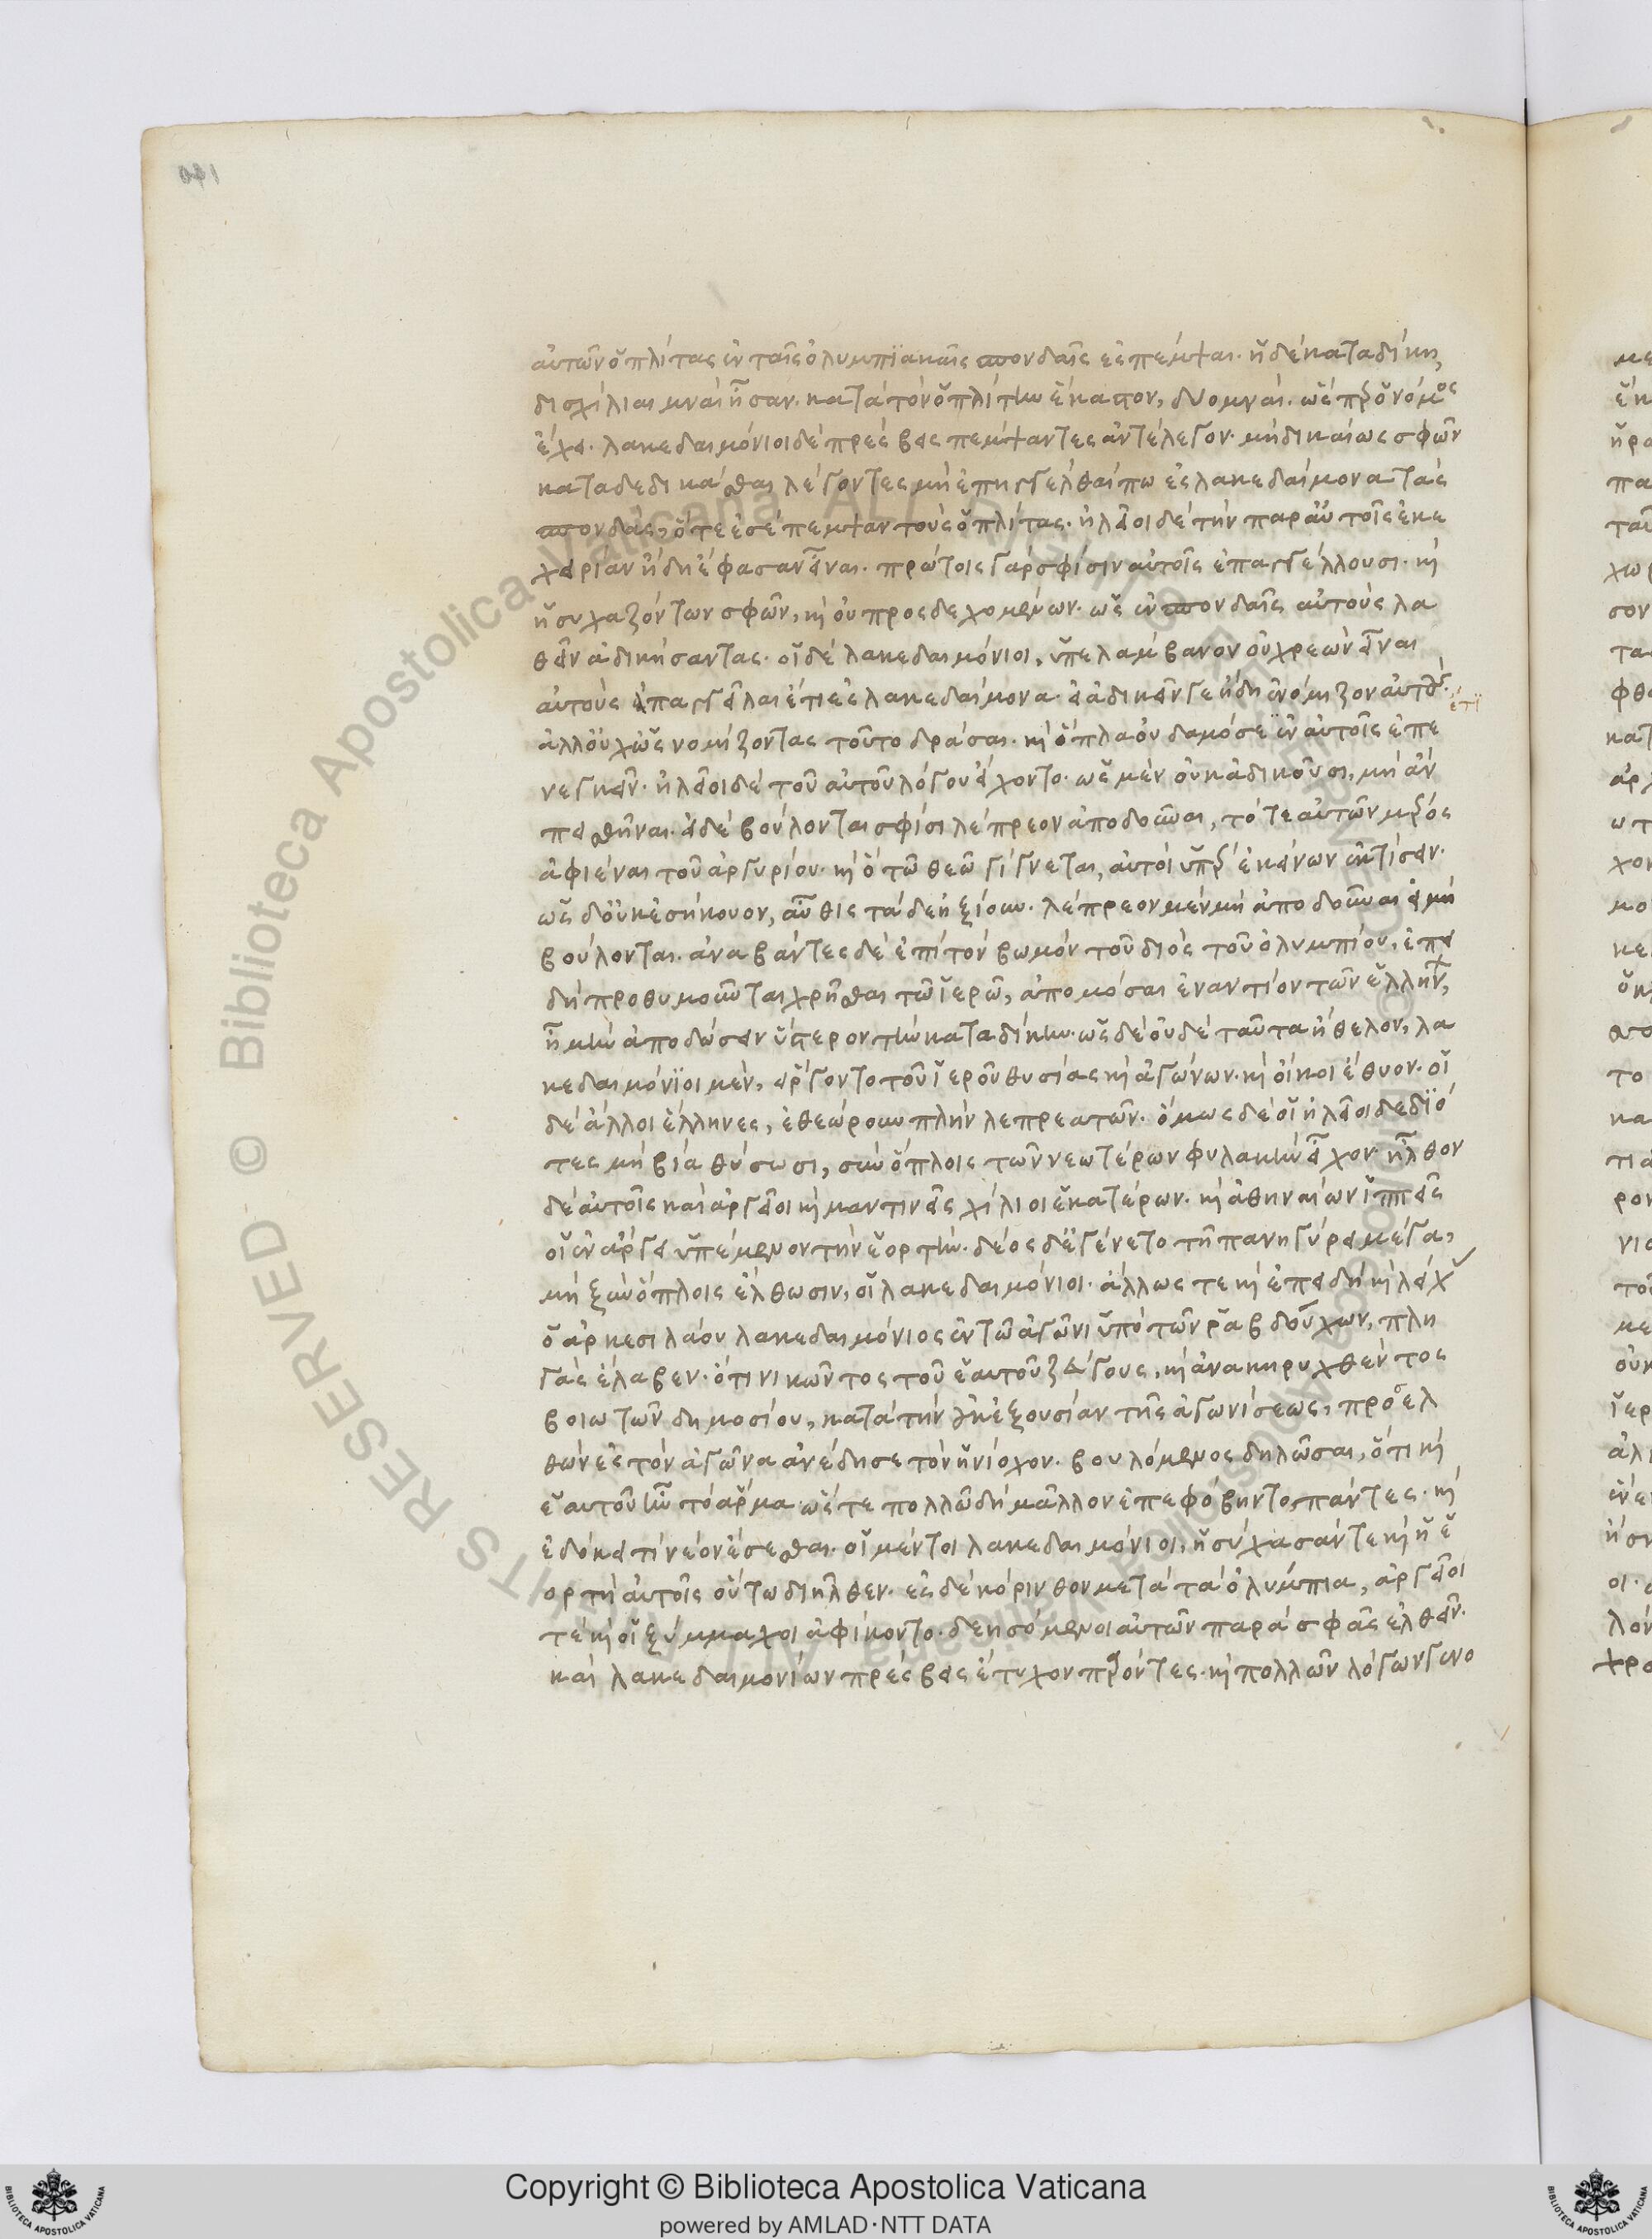 αὐτῶν ὁπλίτας ἐν ταῖς ὀλυμπϊακαῖς σπονδαῖς ἐσπέμψαι· ἡ δὲ καταδίκη,
δισχίλιαι μναῖ ἦσαν· κατὰ τὸν ὁπλίτην ἕκαστον, δύο μναῖ· ὥσπερ ὁ νόμος
ἔχει· λακεδαιμόνιοι δὲ πρέσβεις πέμψαντες ἀντέλεγον· μὴ δικαίως σφῶν
καταδεδικάσθαι λέγοντες μὴ ἐπηγγέλθαί πω ἐς λακεδαίμονα τὰς
σπονδάς, ὅτε ἐσέπεμψαν τοὺς ὁπλίτας· ἠλεῖοι δὲ τὴν παρ αὐτοῖς ἐκε
χειρίαν ἤδη ἔφασαν εἶναι· πρώτοις γὰρ σφίσιν αὐτοῖς ἐπαγγέλλουσι· κὶ
ἡσυχαζόντων σφῶν, κὶ οὐ προσδεχομένων· ὡς ἐν σπονδαῖς αὐτοὺς λα
θεῖν ἀδικήσαντας· οἱ δὲ λακεδαιμόνιοι, ὑπελάμβανον οὐ χρεὼν εἶναι
αὐτοὺς ἐπαγγεῖλαι ἔτι ἐς λακεδαίμονα· εἰ ἀδικεῖν γε ἤδη ἐνόμιζον αὐτούς·
ἔτϊ
ἀλλ οὐχ ὡς νομίζοντας τοῦτο δρᾶσαι· κὶ ὅπλα οὐδαμόσε ἐν αὐτοῖς ἐπε
νεγκεῖν· ἠλεῖοι δὲ τοῦ αὐτοῦ λόγου εἴχοντο· ὡς μὲν οὐκ ἀδικοῦσι, μὴ ἂν
πεισθῆναι· εἰ δὲ βούλονται σφίσι λέπρεον ἀποδοῦναι, τό τε αὐτῶν μέρος
ἀφιέναι τοῦ ἀργυρίου· κὶ ὃ τῶ θεῶ γίγνεται, αὐτοὶ ὑπὲρ ἐκείνων ἐκτίσειν·
ὡς δ οὐκ ἐσήκουον, αὖθις τάδε ἠξίουν· λέπρεον μὲν μὴ ἀποδοῦναι εἰ μὴ
βούλονται· ἀναβάντες δὲ ἐπὶ τὸν βωμὸν τοῦ διὸς τοῦ ὀλυμπίου, ἐπει
δὴ προθυμοῦνται χρῆσθαι τῶ ἱερῶ, ἀπομόσαι ἐναντίον τῶν ἑλλήνων,
ἦ μὴν ἀποδώσειν ὕστερον τὴν καταδίκην· ὡς δὲ οὐδὲ ταῦτα ἤθελον, λα
κεδαιμόνϊοι μὲν, εἴργοντο τοῦ ἱεροῦ θυσίας κὶ ἀγώνων· κὶ οἴκοι ἔθυον· οἱ
δὲ ἄλλοι ἕλληνες, ἐθεώρουν πλὴν λεπρεατῶν· ὅμως δὲ οἱ ἠλεῖοι δεδϊό
τες μὴ βία θύσωσι, σὺν ὅπλοις τῶν νεωτέρων φυλακὴν εἶχον· ἦλθον
δὲ αὐτοῖς καὶ ἀργεῖοι κὶ μαντινεῖς χίλιοι ἑκατέρων· κὶ ἀθηναίων ἱππεῖς
οἳ ἐν ἄργει ὑπέμενον τὴν ἑορτήν· δέος δ ἐγένετο τῆ πανηγύρει μέγα,
μὴ ξὺν ὅπλοις ἔλθωσιν, οἱ λακεδαιμόνιοι· ἄλλως τε κὶ ἐπειδὴ κὶ λείχ
ὁ ἀρκεσιλάου λακεδαιμόνιος ἐν τῶ ἀγῶνι ὑπὸ τῶν ῥαβδούχων, πλη
γὰς ἔλαβεν· ὅτι νικῶντος τοῦ ἑαυτοῦ ζεύγους, κὶ ἀνακηρυχθέντος
βοιωτῶν δημοσίου, κατὰ τὴν οὐκ ἐξουσίαν τῆς ἀγωνίσεως, προελ
θὼν ἐς τὸν ἀγῶνα ἀνέδησε τὸν ἡνίοχον· βουλόμενος δηλῶσαι, ὅτι κὶ
ἑαυτοῦ ἦν τὸ ἅρμα· ὥστε πολλῶ δὴ μᾶλλον ἐπεφόβηντο πάντες· κὶ
ἐδόκει τὶ νέον ἔσεσθαι· οἱ μέντοι λακεδαιμόνιοι, ἡσύχασάν τε κὶ ἡ ἑ
ορτὴ αὐτοῖς οὕτω διῆλθεν· ἐς δὲ κόρινθον μετὰ τὰ ὀλύμπια, ἀργεῖοί
τε κὶ οἱ ξύμμαχοι ἀφίκοντο· δεησόμενοι αὐτῶν παρὰ σφᾶς ἐλθεῖν·
καὶ λακεδαιμονίων πρέσβεις ἔτυχον παρόντες· κὶ πολλῶν λόγων γενο